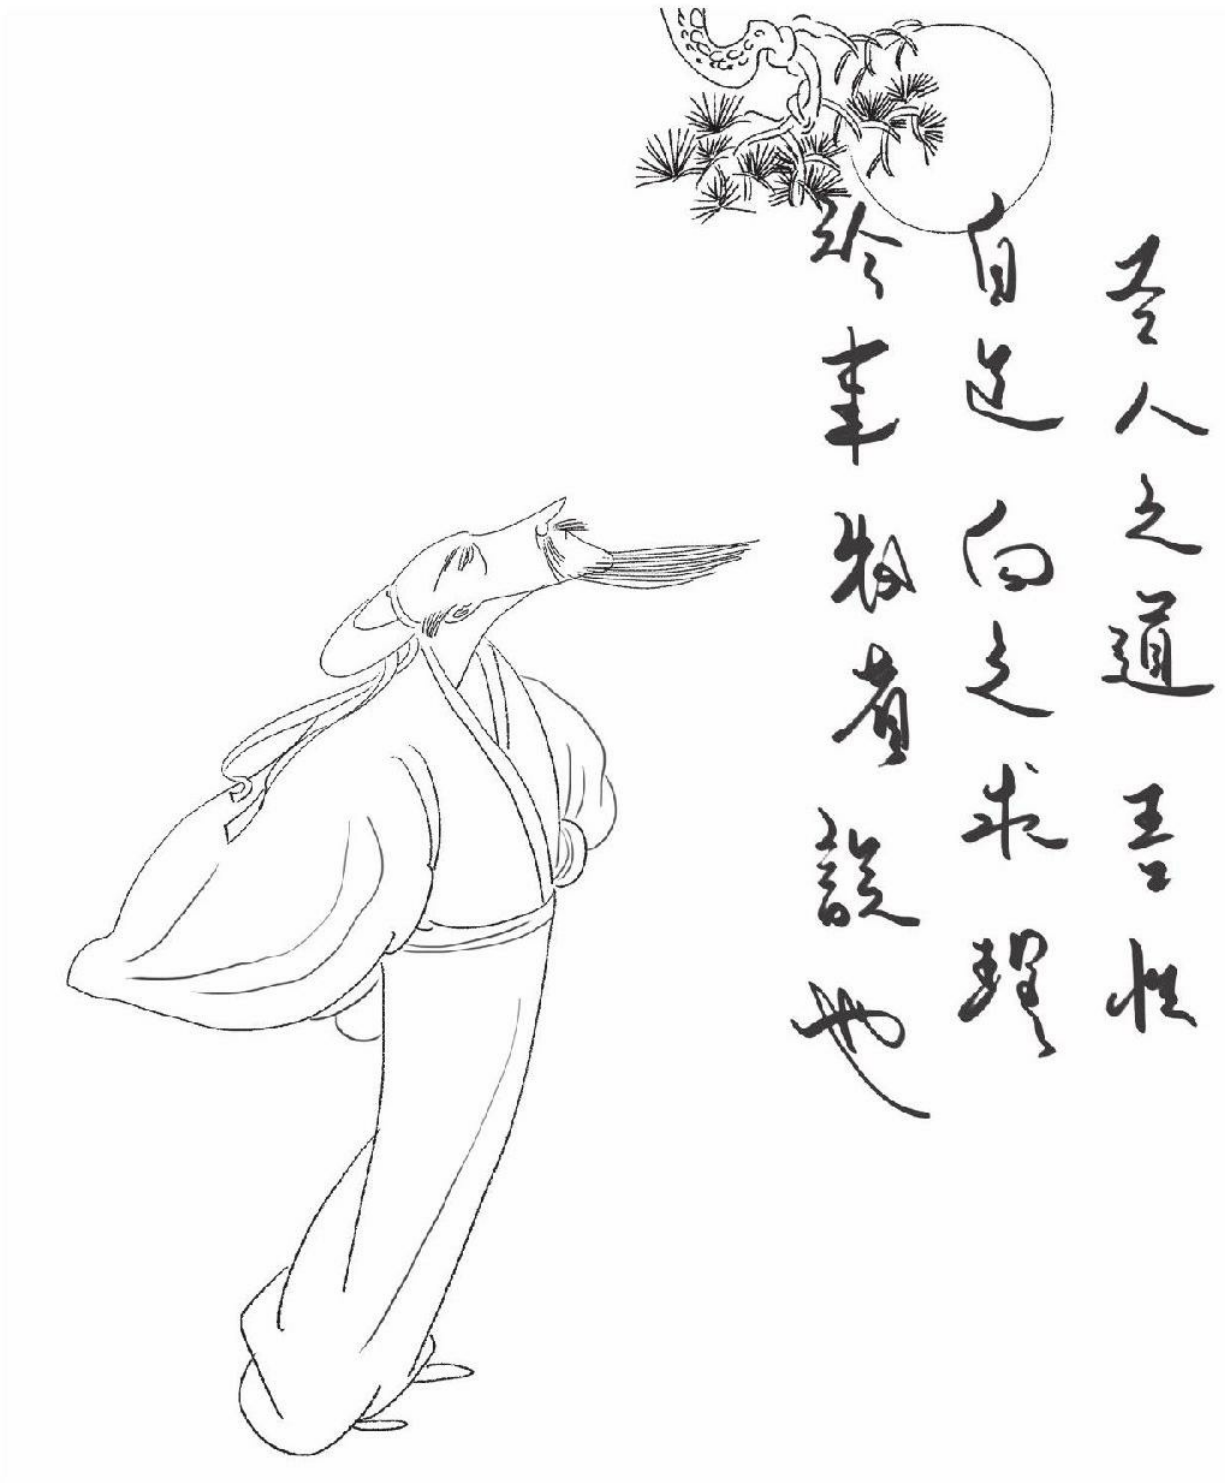 圣人之道吾性
自足向之求理
於事物者誤也